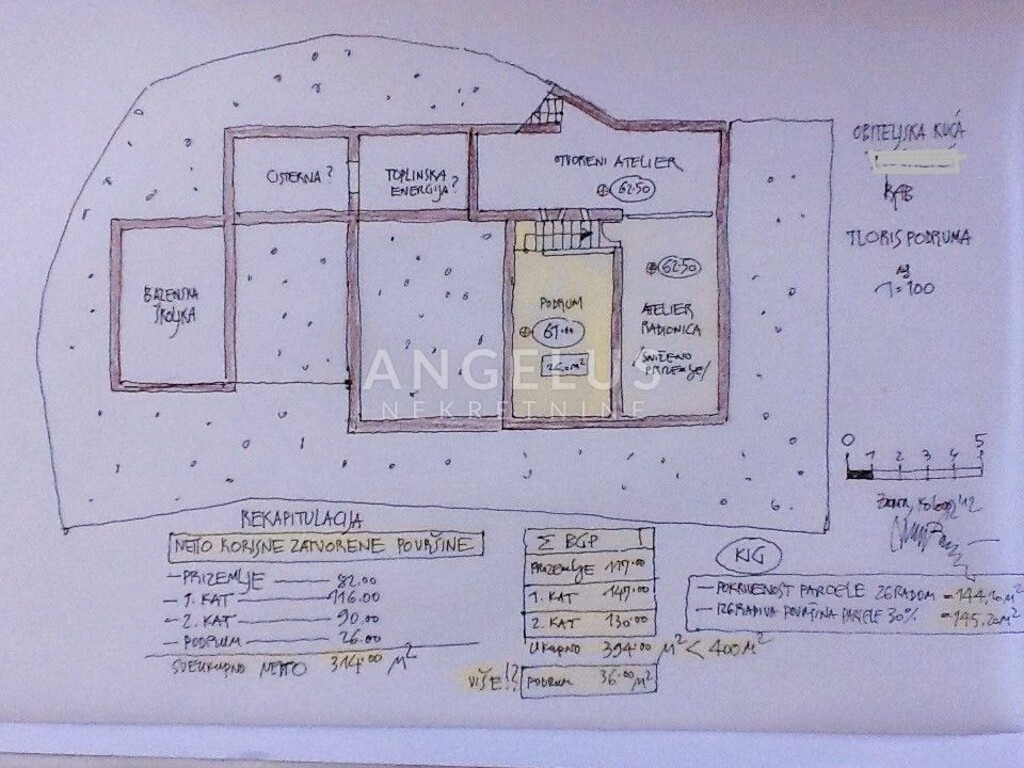 OBITELJSKA KUĆA
TLORIS PODRUMA
1=100
CISTERNA?
TOPLINSKA
ENERGIJA?
OTVORENI ATELIER
62.50
62.50
BAZENSKA
ŠKOLJKA
PODRUM
61.00
ATELIER
RADIONICA
/SNIŽENO
PRIZEMLJE/
ANGELUS
NEKRETNINE
0 1 2 3 4 5
REKAPITULACIJA
NETTO KORISNE ZATVORENE POVRŠINE
- PRIZEMLJE 82.00
- 1. KAT 116.00
- 2. KAT 90.00
- PODRUM 26.00
SVEUKUPNO NETTO 314.00 M²
Σ BGP
PRIZEMLJE 117.00
1. KAT 147.00
2. KAT 130.00
UKUPNO 394.00 M² < 400 M²
VIŠE!? PODRUM 36.00 M²
KIG
- POKRIVENOST PARCELE ZGRADOM = 144,20 M²
- IZGRADIVA POVRŠINA PARCELE 30% = 145.20 M²